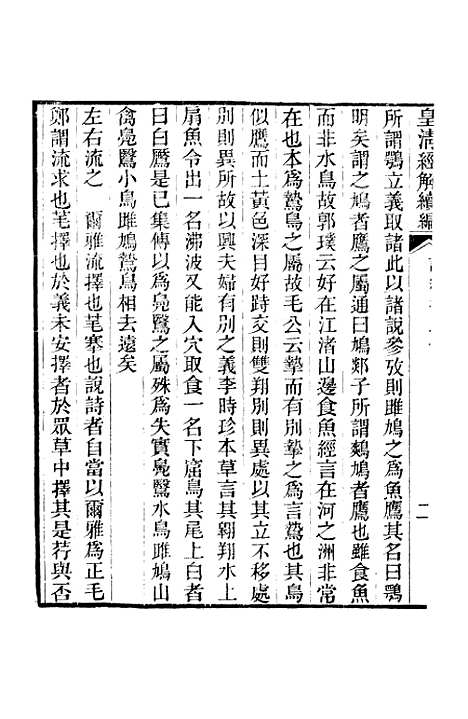 皇清經解續編
二
所謂鶚立義取諸此以諸說參攷則雎鳩之爲魚鷹其名曰鶚
明矣謂之鳩者鷹之屬通曰鳩郯子所謂鷞鳩者鷹也雖食魚
而非水鳥故郭璞云好在江渚山邊食魚經言在河之洲非常
在也本爲鷙鳥之屬故毛公云摯而有別摯之爲言鷙也其鳥
似鷹而土黃色深目好跱交則雙翔別則異處以其立不移處
別則異所故以興夫婦有別之義李時珍本草言其翱翔水上
扇魚令出一名沸波又能入穴取食一名下窟烏其尾上白者
曰白鷢是已集傳以爲鳧鷖之屬殊爲失實鳧鷖水鳥雎鳩山
禽鳧鷖小鳥雎鳩鷙鳥相去遠矣
左右流之　爾雅流擇也芼搴也說詩者自當以爾雅爲正毛
鄭謂流求也芼擇也於義未安擇者於眾草中擇其是荇與否